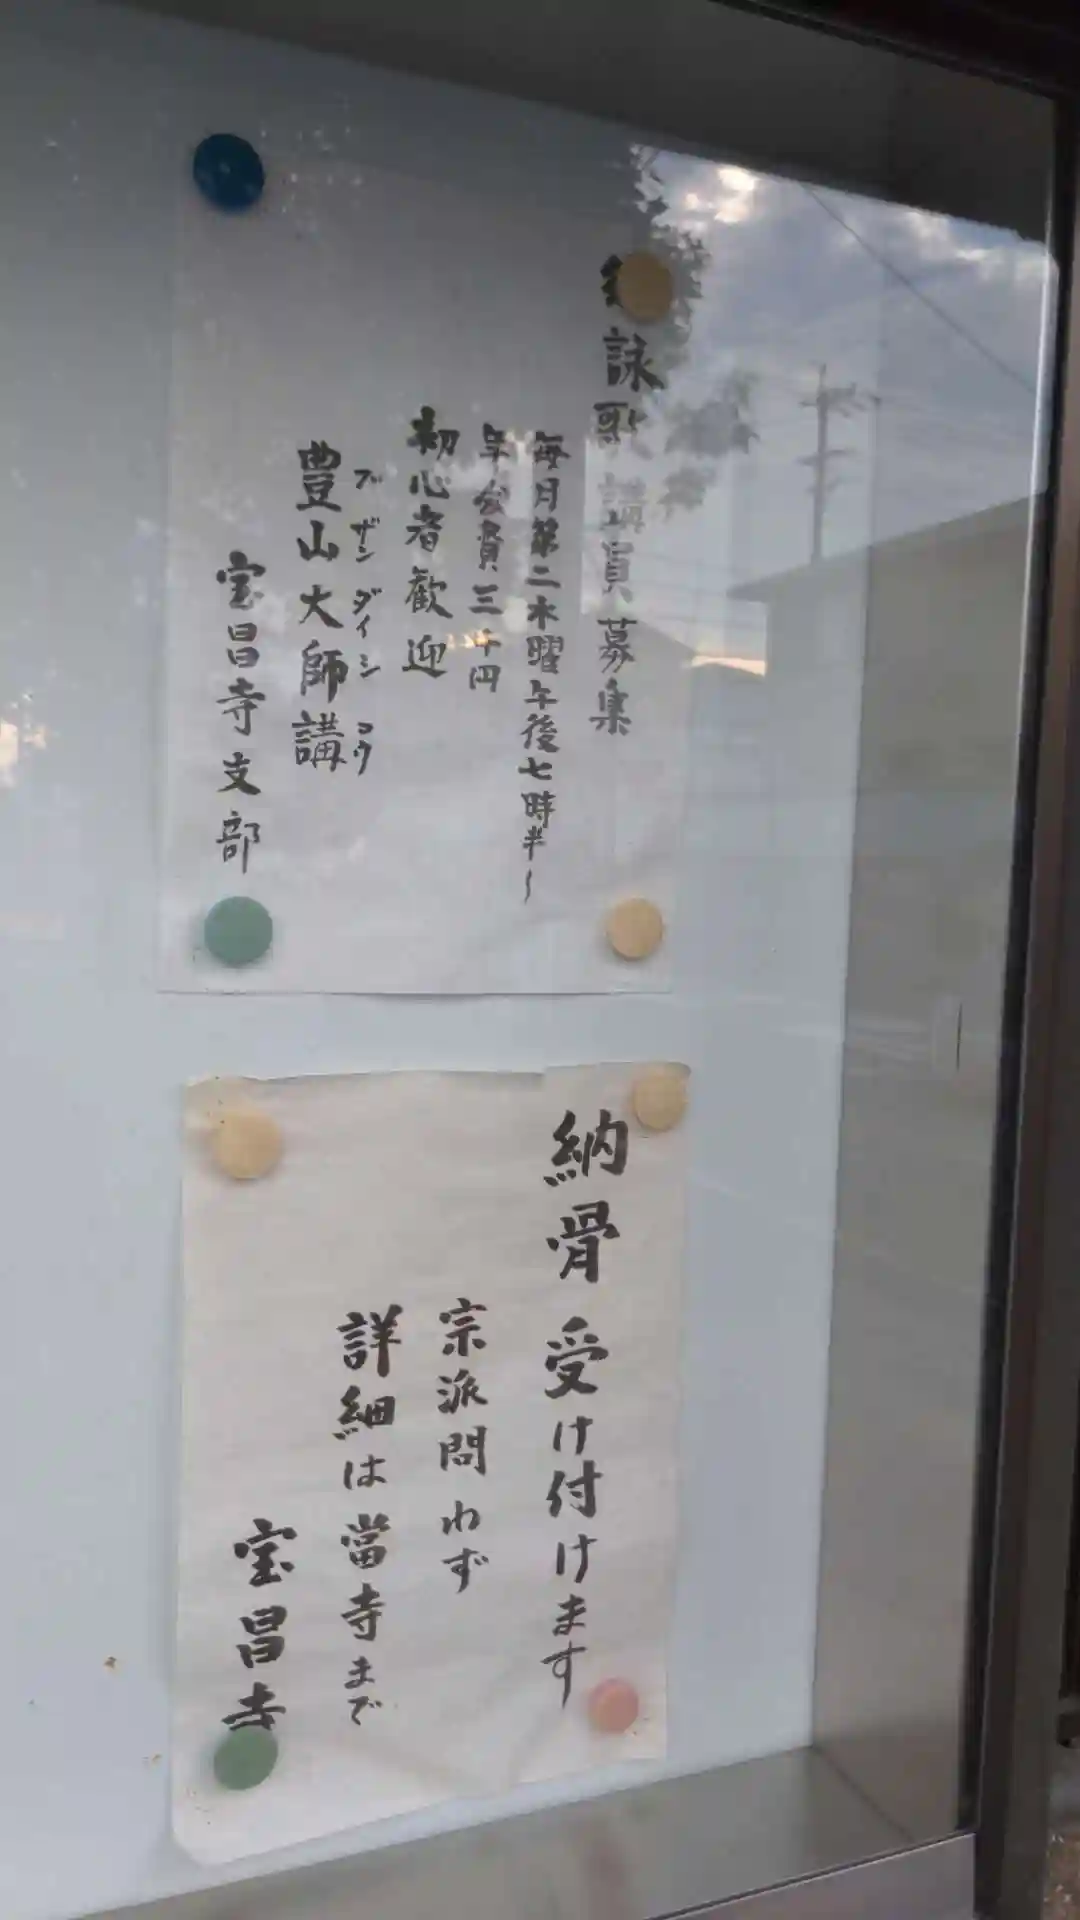 詠歌講員募集
毎月第二木曜午後七時半〜
年会費三千円
初心者歓迎
ブザンダイシコウ
豊山大師講
宝昌寺支部
納骨受け付けます
宗派問わず
詳細は當寺まで
宝昌寺